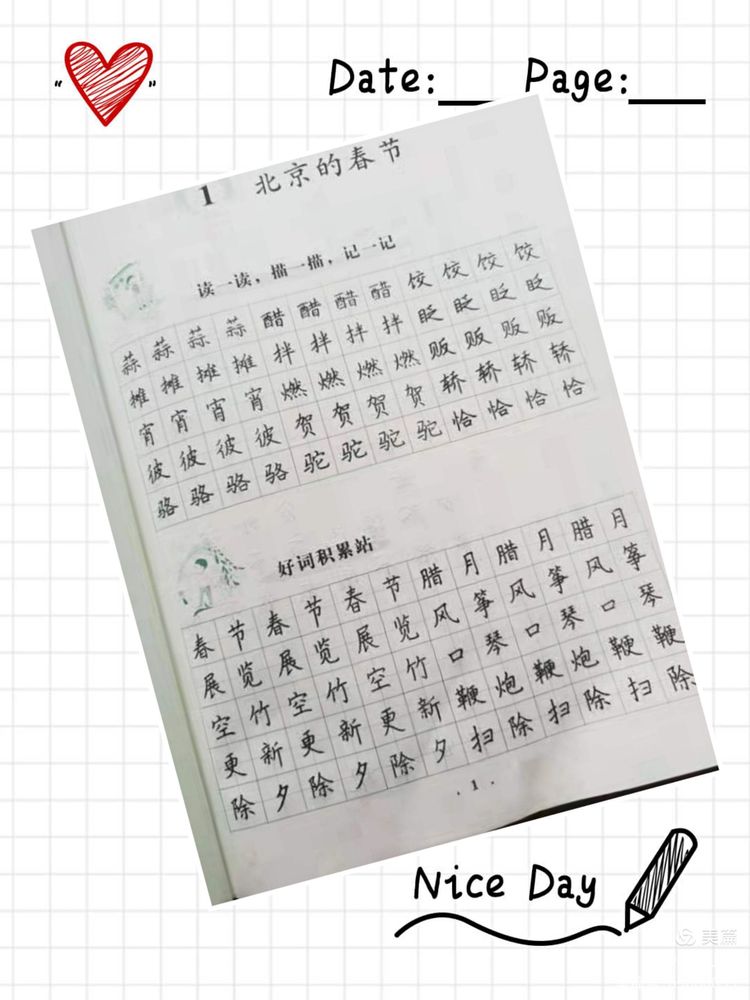 Date:___ Page:___
1 北京的春节
读一读，描一描，记一记
蒜蒜蒜蒜醋醋醋醋饺饺饺饺
摊摊摊摊拌拌拌拌眨眨眨眨
宵宵宵宵燃燃燃燃贩贩贩贩
彼彼彼彼贺贺贺贺轿轿轿轿
骆骆骆骆驼驼驼驼恰恰恰恰
好词积累站
春节春节春节腊月腊月腊月
展览展览展览风筝风筝风筝
空竹空竹空竹口琴口琴口琴
更新更新更新鞭炮鞭炮鞭鞭
除夕除夕除夕扫除扫除扫除
·1·
Nice Day
美篇